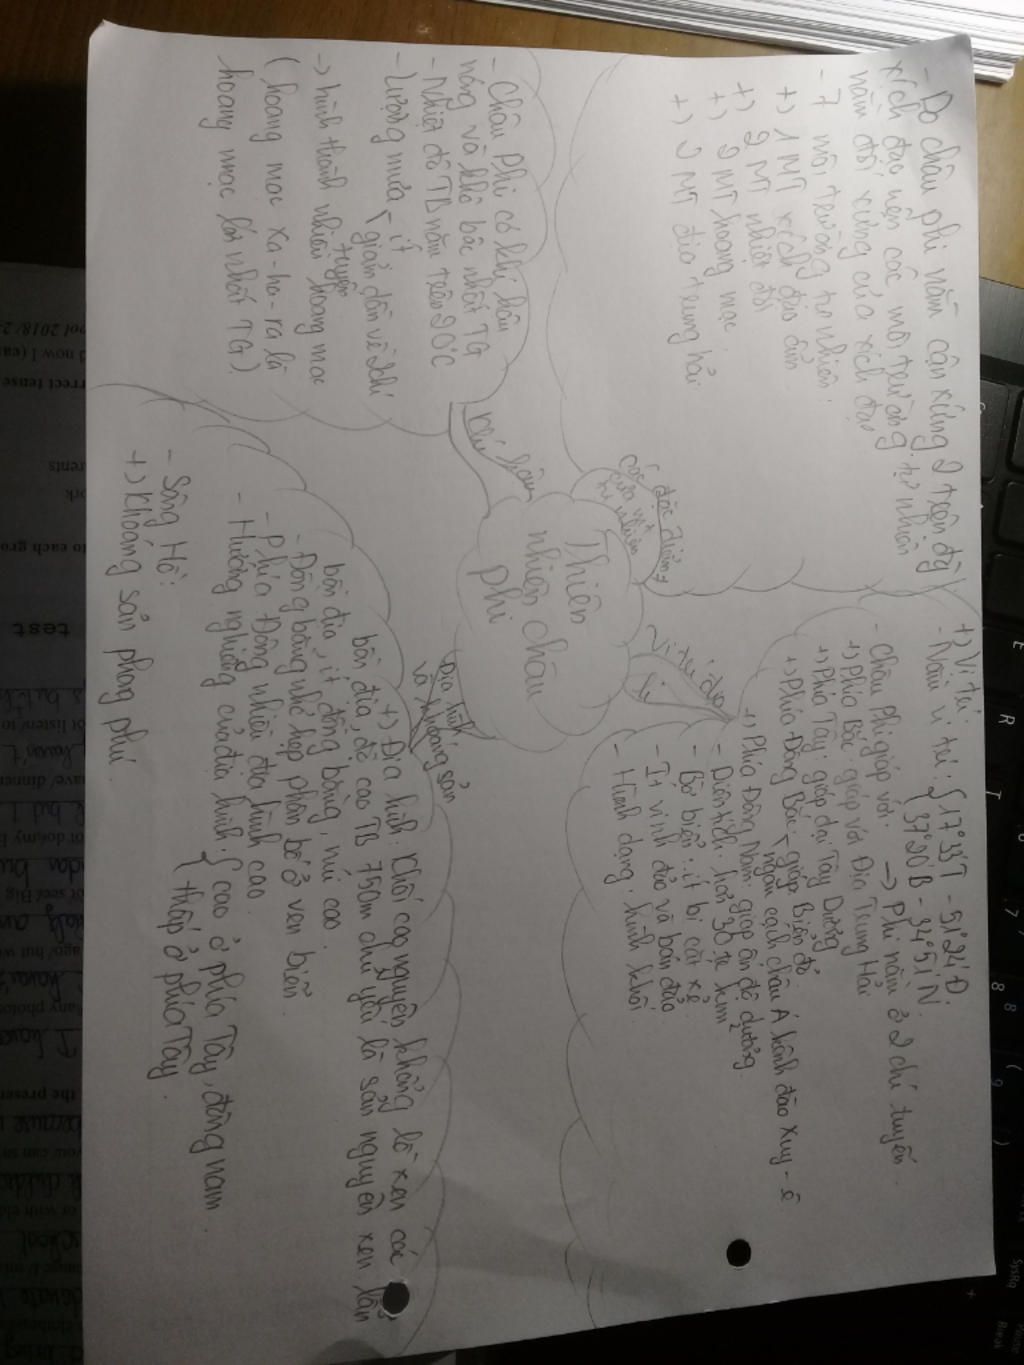 Thiên
nhiên châu
phi
các đặc điểm
của mt
tự nhiên
- Do châu phi nằm cân xứng 2 trên độ
xích đạo nên các môi trường tự nhiên
nằm đối xứng của xích đạo
- 7 môi trường tự nhiên.
+) 1 MT xích đạo ẩm
+) 2 MT nhiệt đới
+) 2 MT hoang mạc
+) 2 MT địa trung hải
Khí hậu
- Châu Phi có khí hậu
nóng và khô bậc nhất TG
- Nhiệt độ TB năm trên 20°C
- Lượng mưa ít
giảm dần về 2 chí
tuyến
-> hình thành nhiều hoang mạc
(hoang mạc Xa-ha-ra là
hoang mạc lớn nhất TG)
Vị trí địa
lí
+) Vị trí:
- Nằm vị trí: { 17°33'T - 51°24'Đ.
37°20'B - 34°51'N.
- Châu Phi giáp với: -> Phi nằm ở 2 chí tuyến.
+) Phía Bắc: giáp với Địa Trung Hải
+) Phía Tây: giáp đại Tây Dương
+) Phía Đông Bắc: giáp Biển đỏ.
ngăn cách châu Á kênh đào Xuy-ê
+) Phía Đông Nam: giáp ấn độ dương.
- Diện tích: hơn 30 tr km
- Bờ biển: ít bị cắt xẻ
- Ít vịnh đảo và bán đảo
- Hình dạng: hình khối
Địa hình
và khoáng sản
+) Địa hình: Khối cao nguyên khổng lồ xen các
bồn địa, độ cao TB 750m chủ yếu là sơn nguyên xen lẫn
bồn địa, ít đồng bằng, núi cao.
- Đồng bằng nhỏ hẹp phân bố ở ven biển
- phía Đông nhiều địa hình cao.
- Hướng nghiêng của địa hình: { cao ở phía Tây, đông nam.
thấp ở phía Tây.
- Sông Hồ:
+) Khoáng sản phong phú.